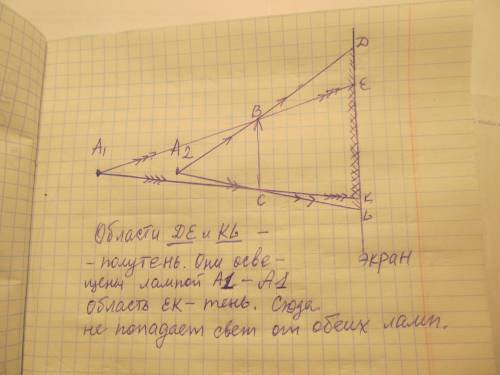 D
B
E
A1
A2
C
K
L
экран
Области DE и KL –
- полутень. Они осве-
щены лампой A1 – A1
область EK – тень. Сюда
не попадает свет от обеих ламп.